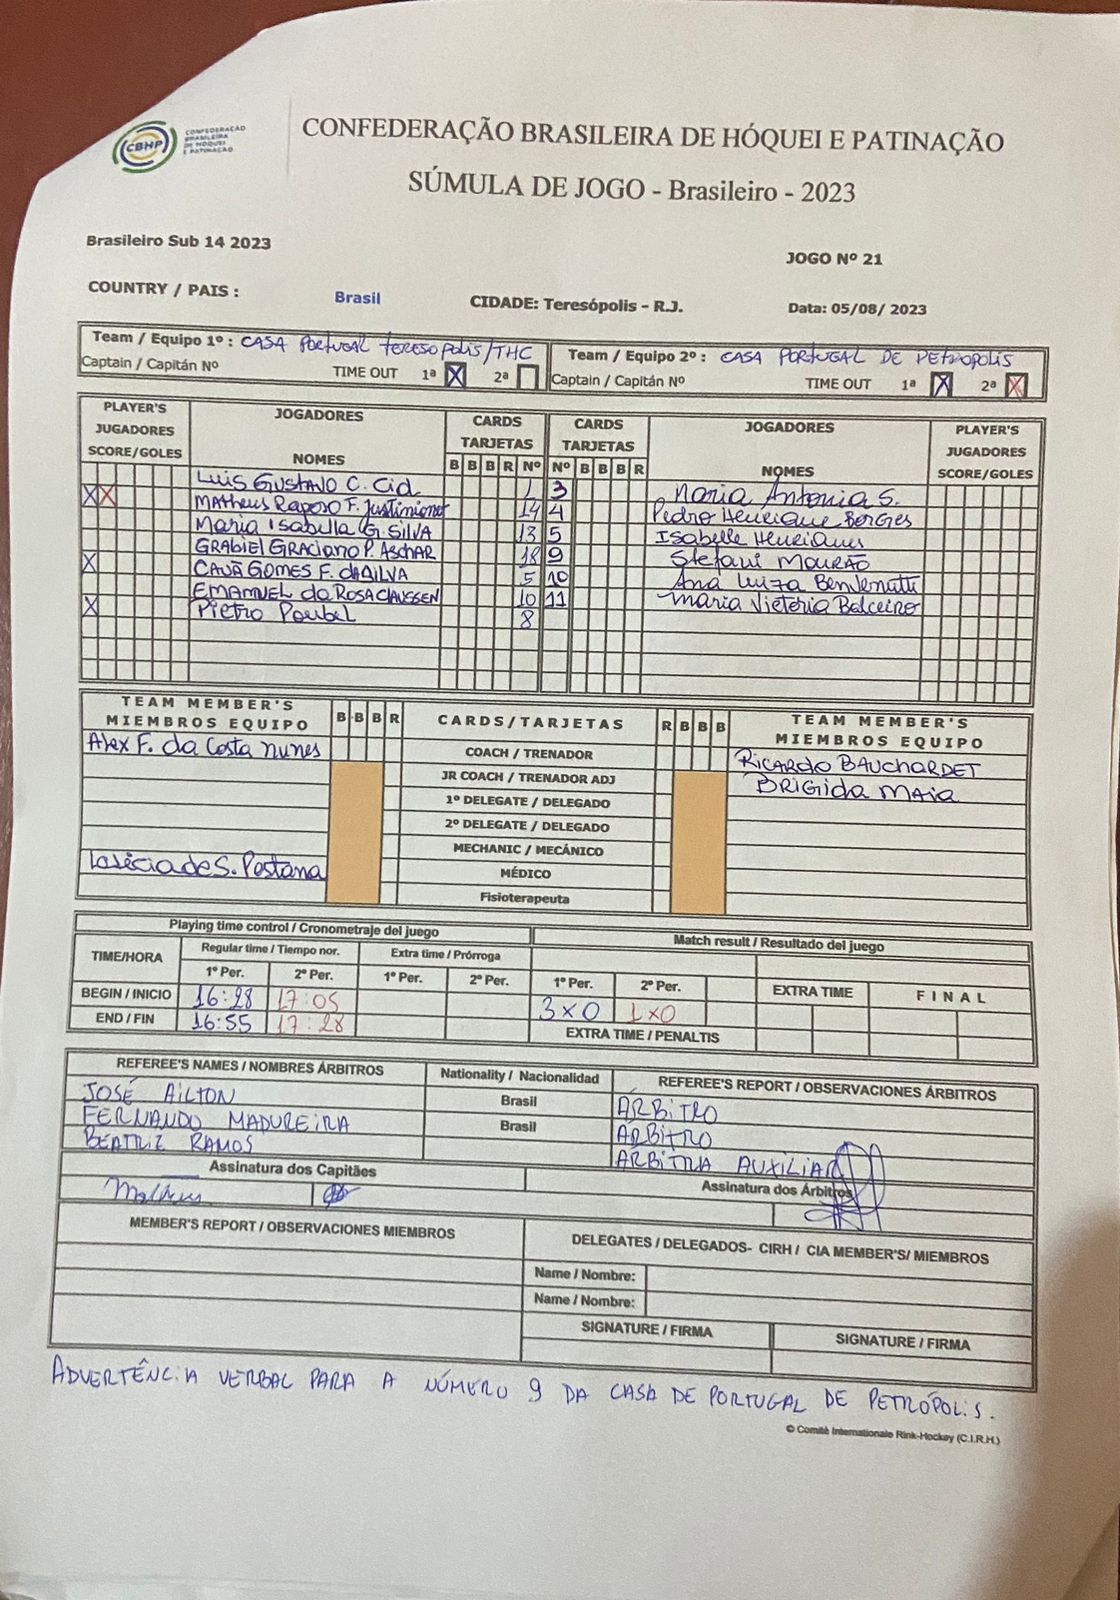 CBHP CONFEDERAÇÃO
BRASILEIRA
DE HÓQUEI
E PATINAÇÃO
CONFEDERAÇÃO BRASILEIRA DE HÓQUEI E PATINAÇÃO
SÚMULA DE JOGO - Brasileiro - 2023
Brasileiro Sub 14 2023
JOGO Nº 21
COUNTRY / PAIS : Brasil CIDADE: Teresópolis - R.J. Data: 05/08/ 2023
Team / Equipo 1º : CASA PORTUGAL TERESOPOLIS/THC Team / Equipo 2º : CASA PORTUGAL DE PETROPOLIS
Captain / Capitán Nº TIME OUT 1ª X 2ª Captain / Capitán Nº TIME OUT 1ª X 2ª X
PLAYER'S JUGADORES SCORE/GOLES JOGADORES NOMES CARDS TARJETAS CARDS TARJETAS JOGADORES NOMES PLAYER'S JUGADORES SCORE/GOLES
B B B R Nº Nº B B B R
Luis GUSTAVO C. Cid 1 3 Maria Antonia S.
X X MAtheus Raposo F. 14 4 Pedro Henrique Borges
Maria Isabella G. SILVA 13 5 Isabelle Henriques
GRAbiEL GRACiano P. AschAR 18 9 Stefani MOURÃO
X CAUÃ GOMES F. dA SILVA 5 10 Ana Luiza Benvenutti
EMANUEL da ROSA CLAUSSEN 10 11 Maria Victória Balceiro
X Pietro Poubel 8
TEAM MEMBER'S MIEMBROS EQUIPO B B B R CARDS/TARJETAS R B B B TEAM MEMBER'S MIEMBROS EQUIPO
Alex F. da Costa nunes COACH / TRENADOR RICARDO BAUCHARDET
JR COACH / TRENADOR ADJ BRIGIDA MAIA
1º DELEGATE / DELEGADO
2º DELEGATE / DELEGADO
MECHANIC / MECÁNICO
MÉDICO
Fisioterapeuta
Playing time control / Cronometraje del juego Match result / Resultado del juego
TIME/HORA Regular time / Tiempo nor. Extra time / Prórroga
1º Per. 2º Per. 1º Per. 2º Per. 1º Per. 2º Per. EXTRA TIME FINAL
BEGIN / INICIO 16:28 17:05 3x0 1x0
END / FIN 16:55 17:28 EXTRA TIME / PENALTIS
REFEREE'S NAMES / NOMBRES ÁRBITROS Nationality / Nacionalidad REFEREE'S REPORT / OBSERVACIONES ÁRBITROS
JOSÉ AILTON Brasil ÁRBITRO
FERNANDO MADUREIRA Brasil ÁRBITRO
BEATRIZ RAMOS ÁRBITRA AUXILIAR
Assinatura dos Capitães Assinatura dos Árbitros
Matheus
MEMBER'S REPORT / OBSERVACIONES MIEMBROS DELEGATES / DELEGADOS- CIRH / CIA MEMBER'S/ MIEMBROS
Name / Nombre:
Name / Nombre:
SIGNATURE / FIRMA SIGNATURE / FIRMA
ADVERTÊNCIA VERBAL PARA A NÚMERO 9 DA CASA DE PORTUGAL DE PETRÓPOLIS.
© Comité Internationale Rink-Hockey (C.I.R.H.)